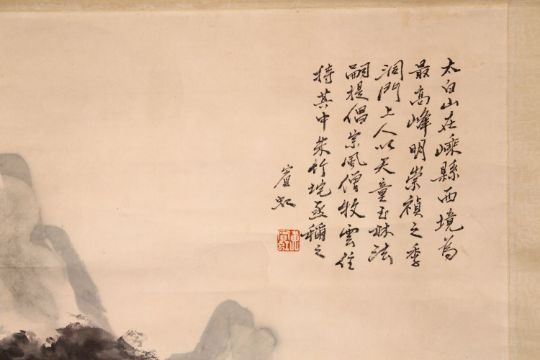 太白山在嵊縣西境為
最高峰明崇禎之季
洞門上人以天童玉林法
嗣提倡宗風僧牧雲住
持其中朱竹垞亟稱之
賓虹